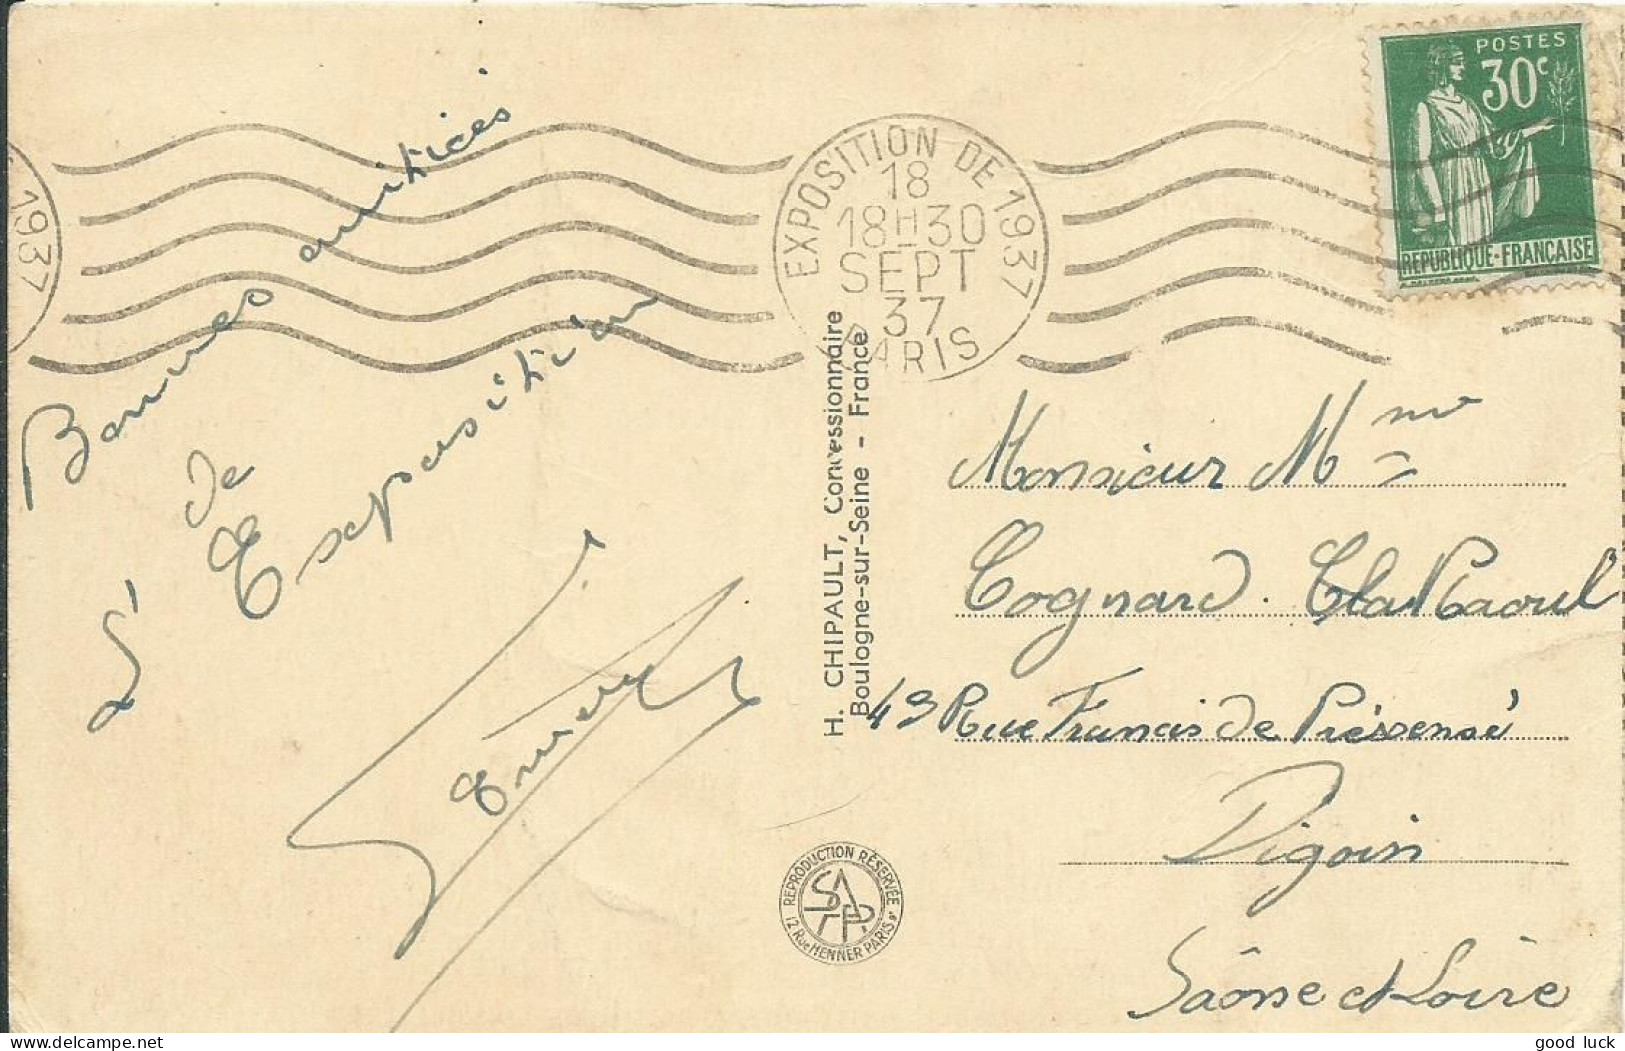 1937
EXPOSITION DE 1937
18
18H30
SEPT
37
PARIS
POSTES
30c
REPUBLIQUE-FRANÇAISE
Bonnes amitiés
de
L'Exposition
H. CHIPAULT, Concessionnaire
Boulogne-sur-Seine - France
REPRODUCTION RÉSERVÉE
SAFP
12 Rue HENNER PARIS 9e
Monsieur Mme
Cognard Raoul
49 Rue Francis de Préssensé
Digoin
Saône et Loire
good luck